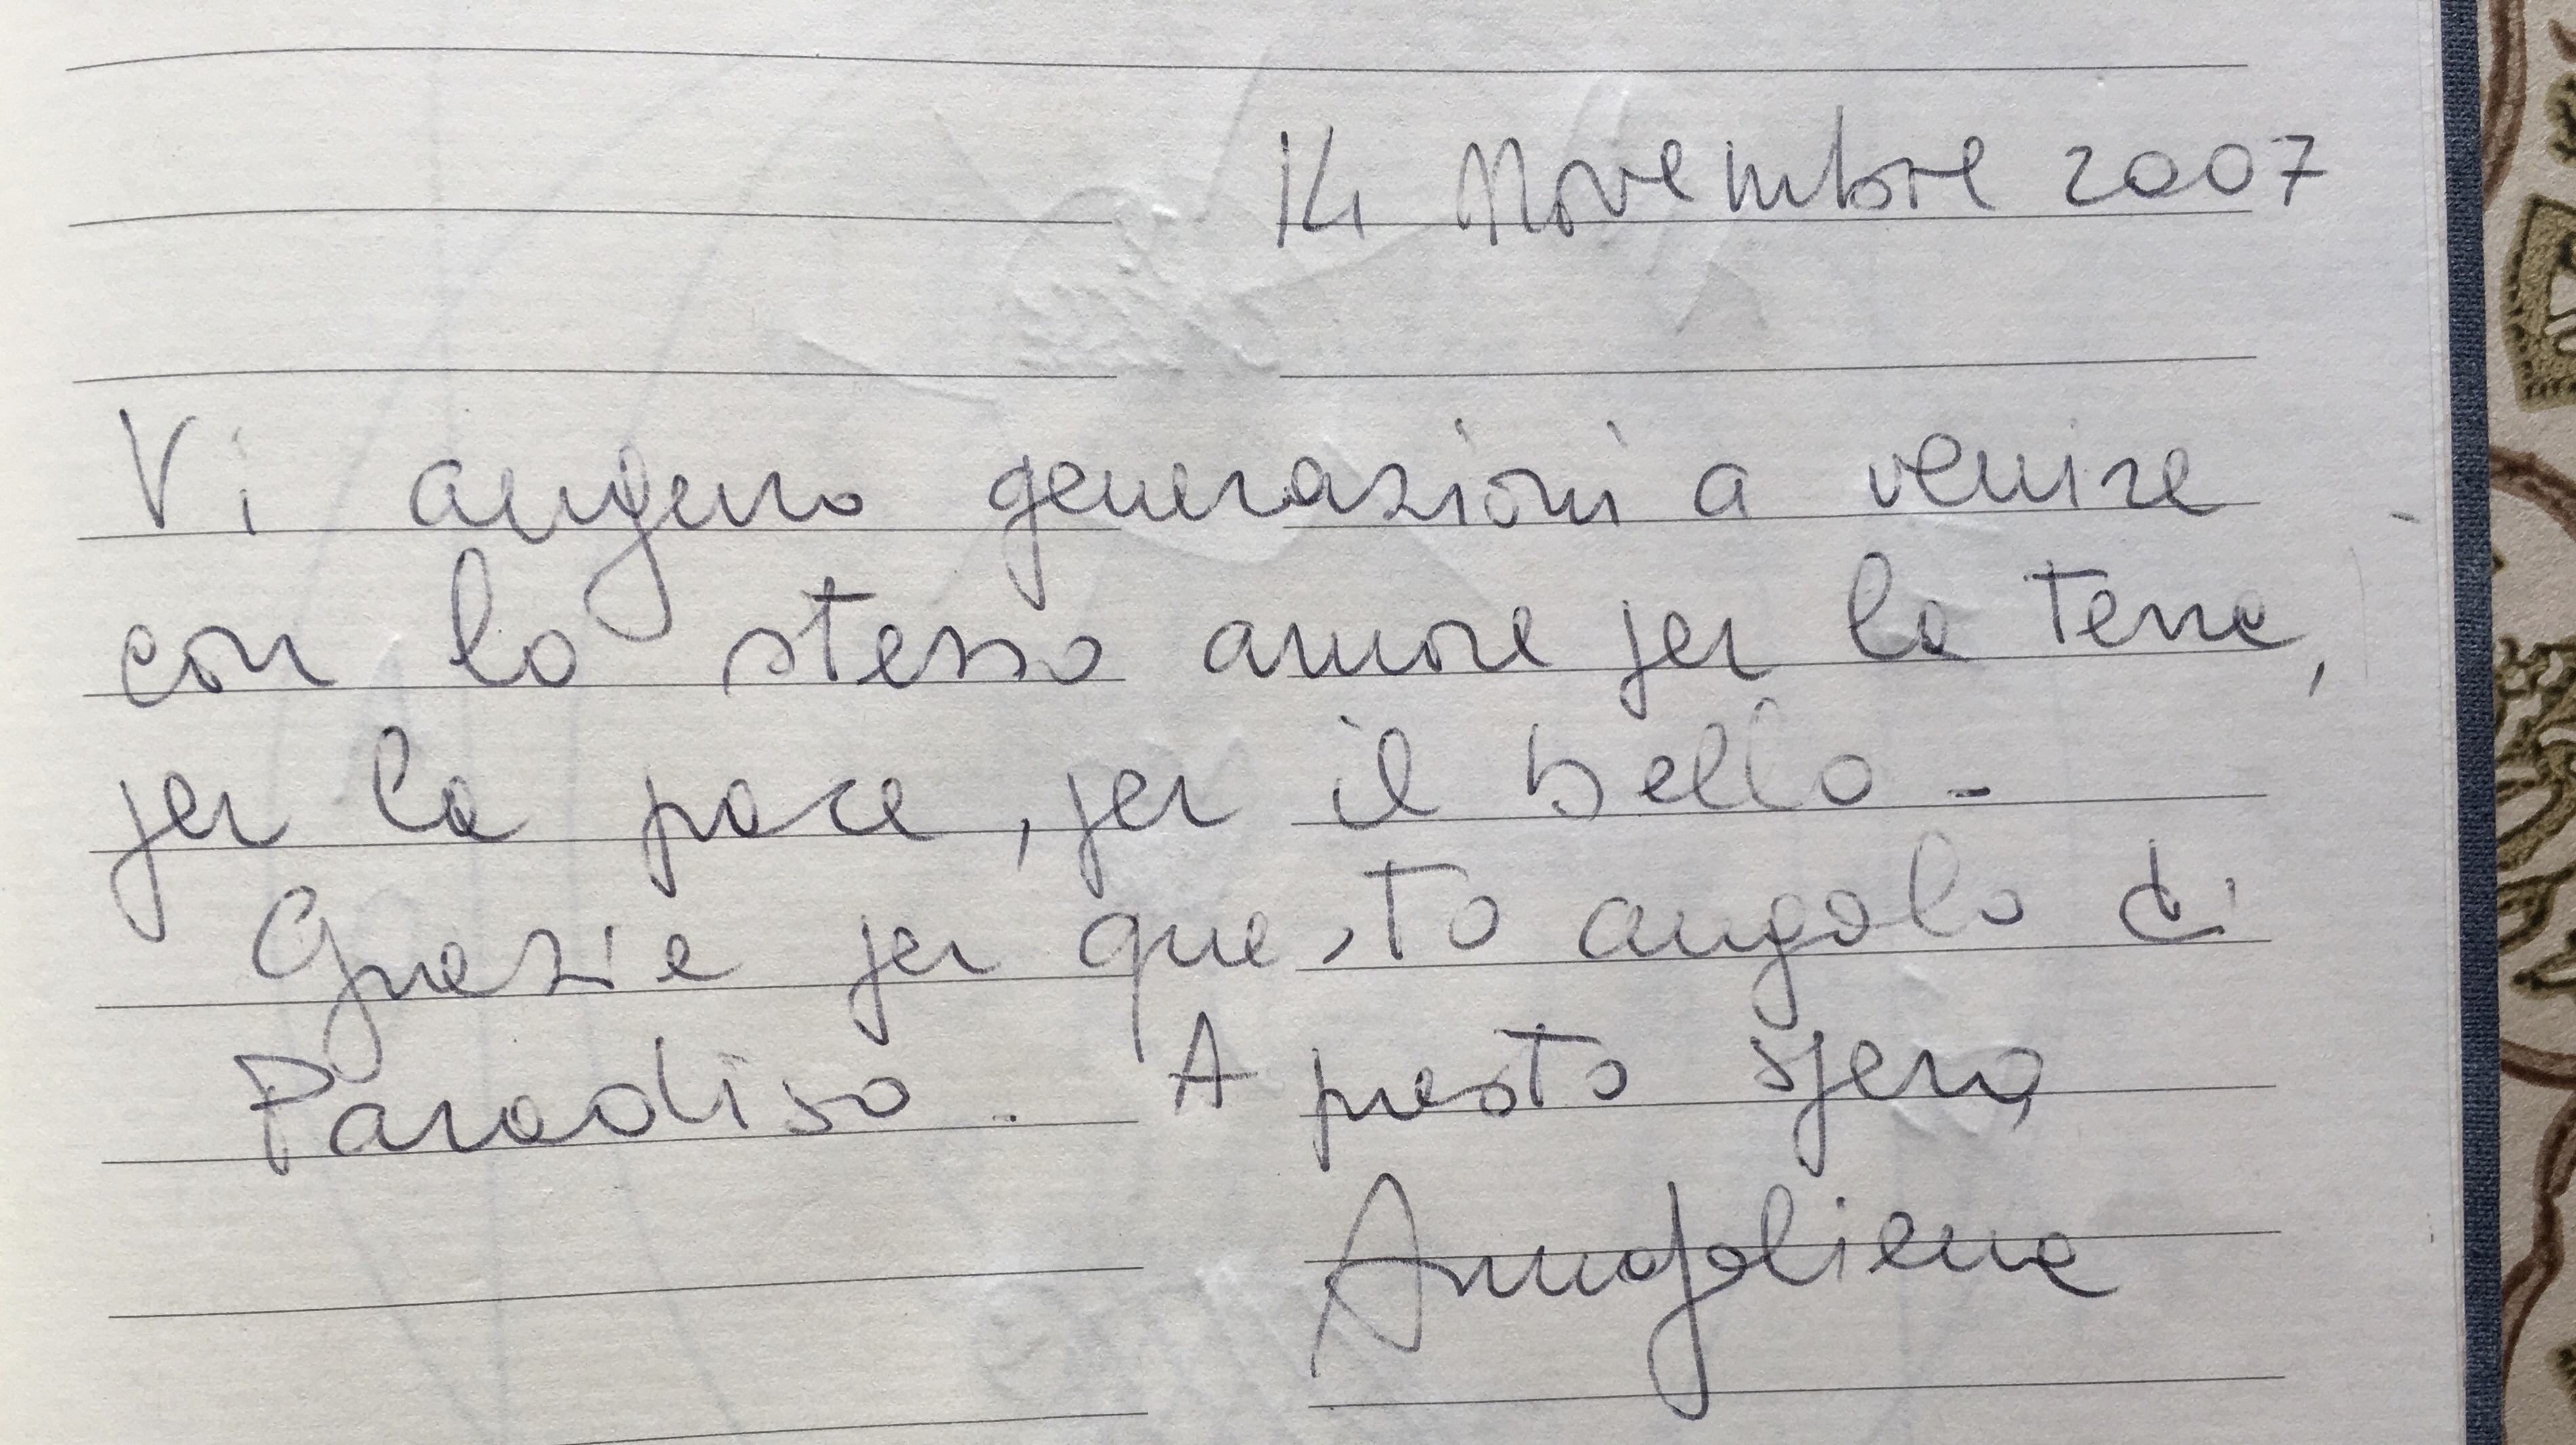 14 Novembre 2007
Vi auguro generazioni a venire
con lo stesso amore per la terra,
per la pace, per il bello -
Grazie per questo angolo di
Paradiso. A presto spero,